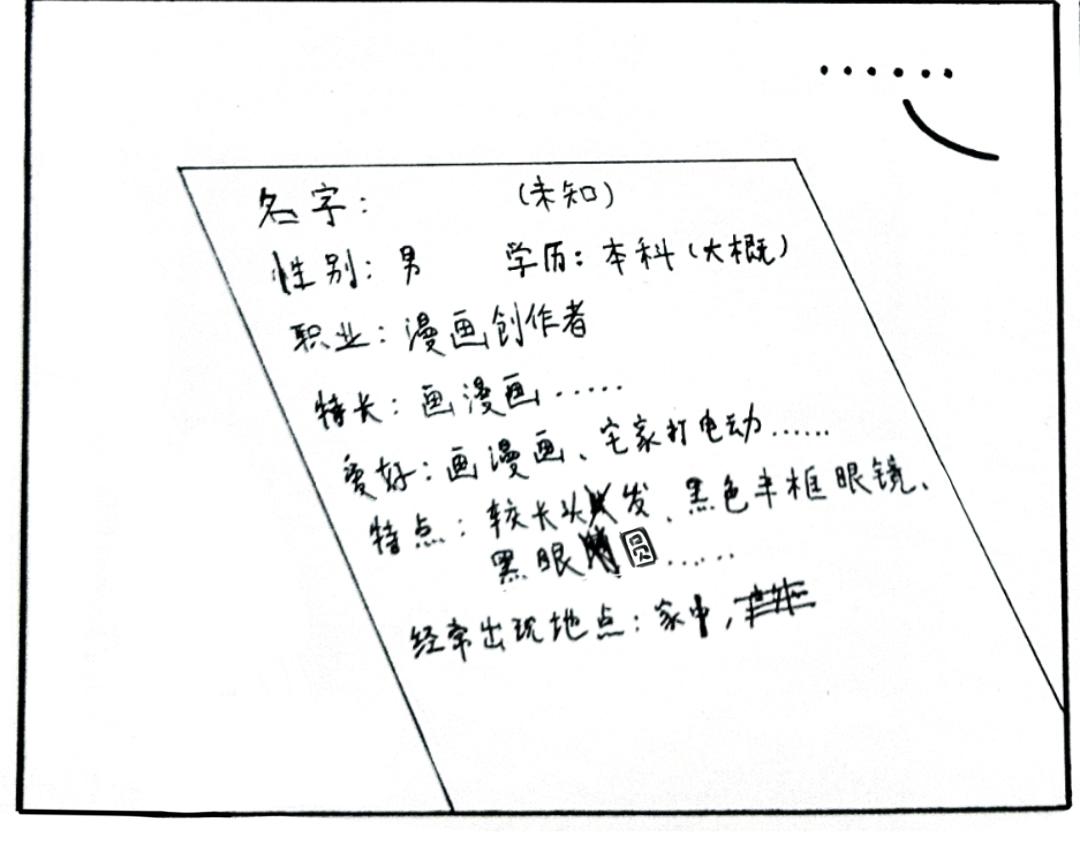 ……
名字： （未知）
性别：男 学历：本科（大概）
职业：漫画创作者
特长：画漫画……
爱好：画漫画、宅家打电动……
特点：较长头发、黑色半框眼镜、
黑眼圆……
经常出现地点：家中，